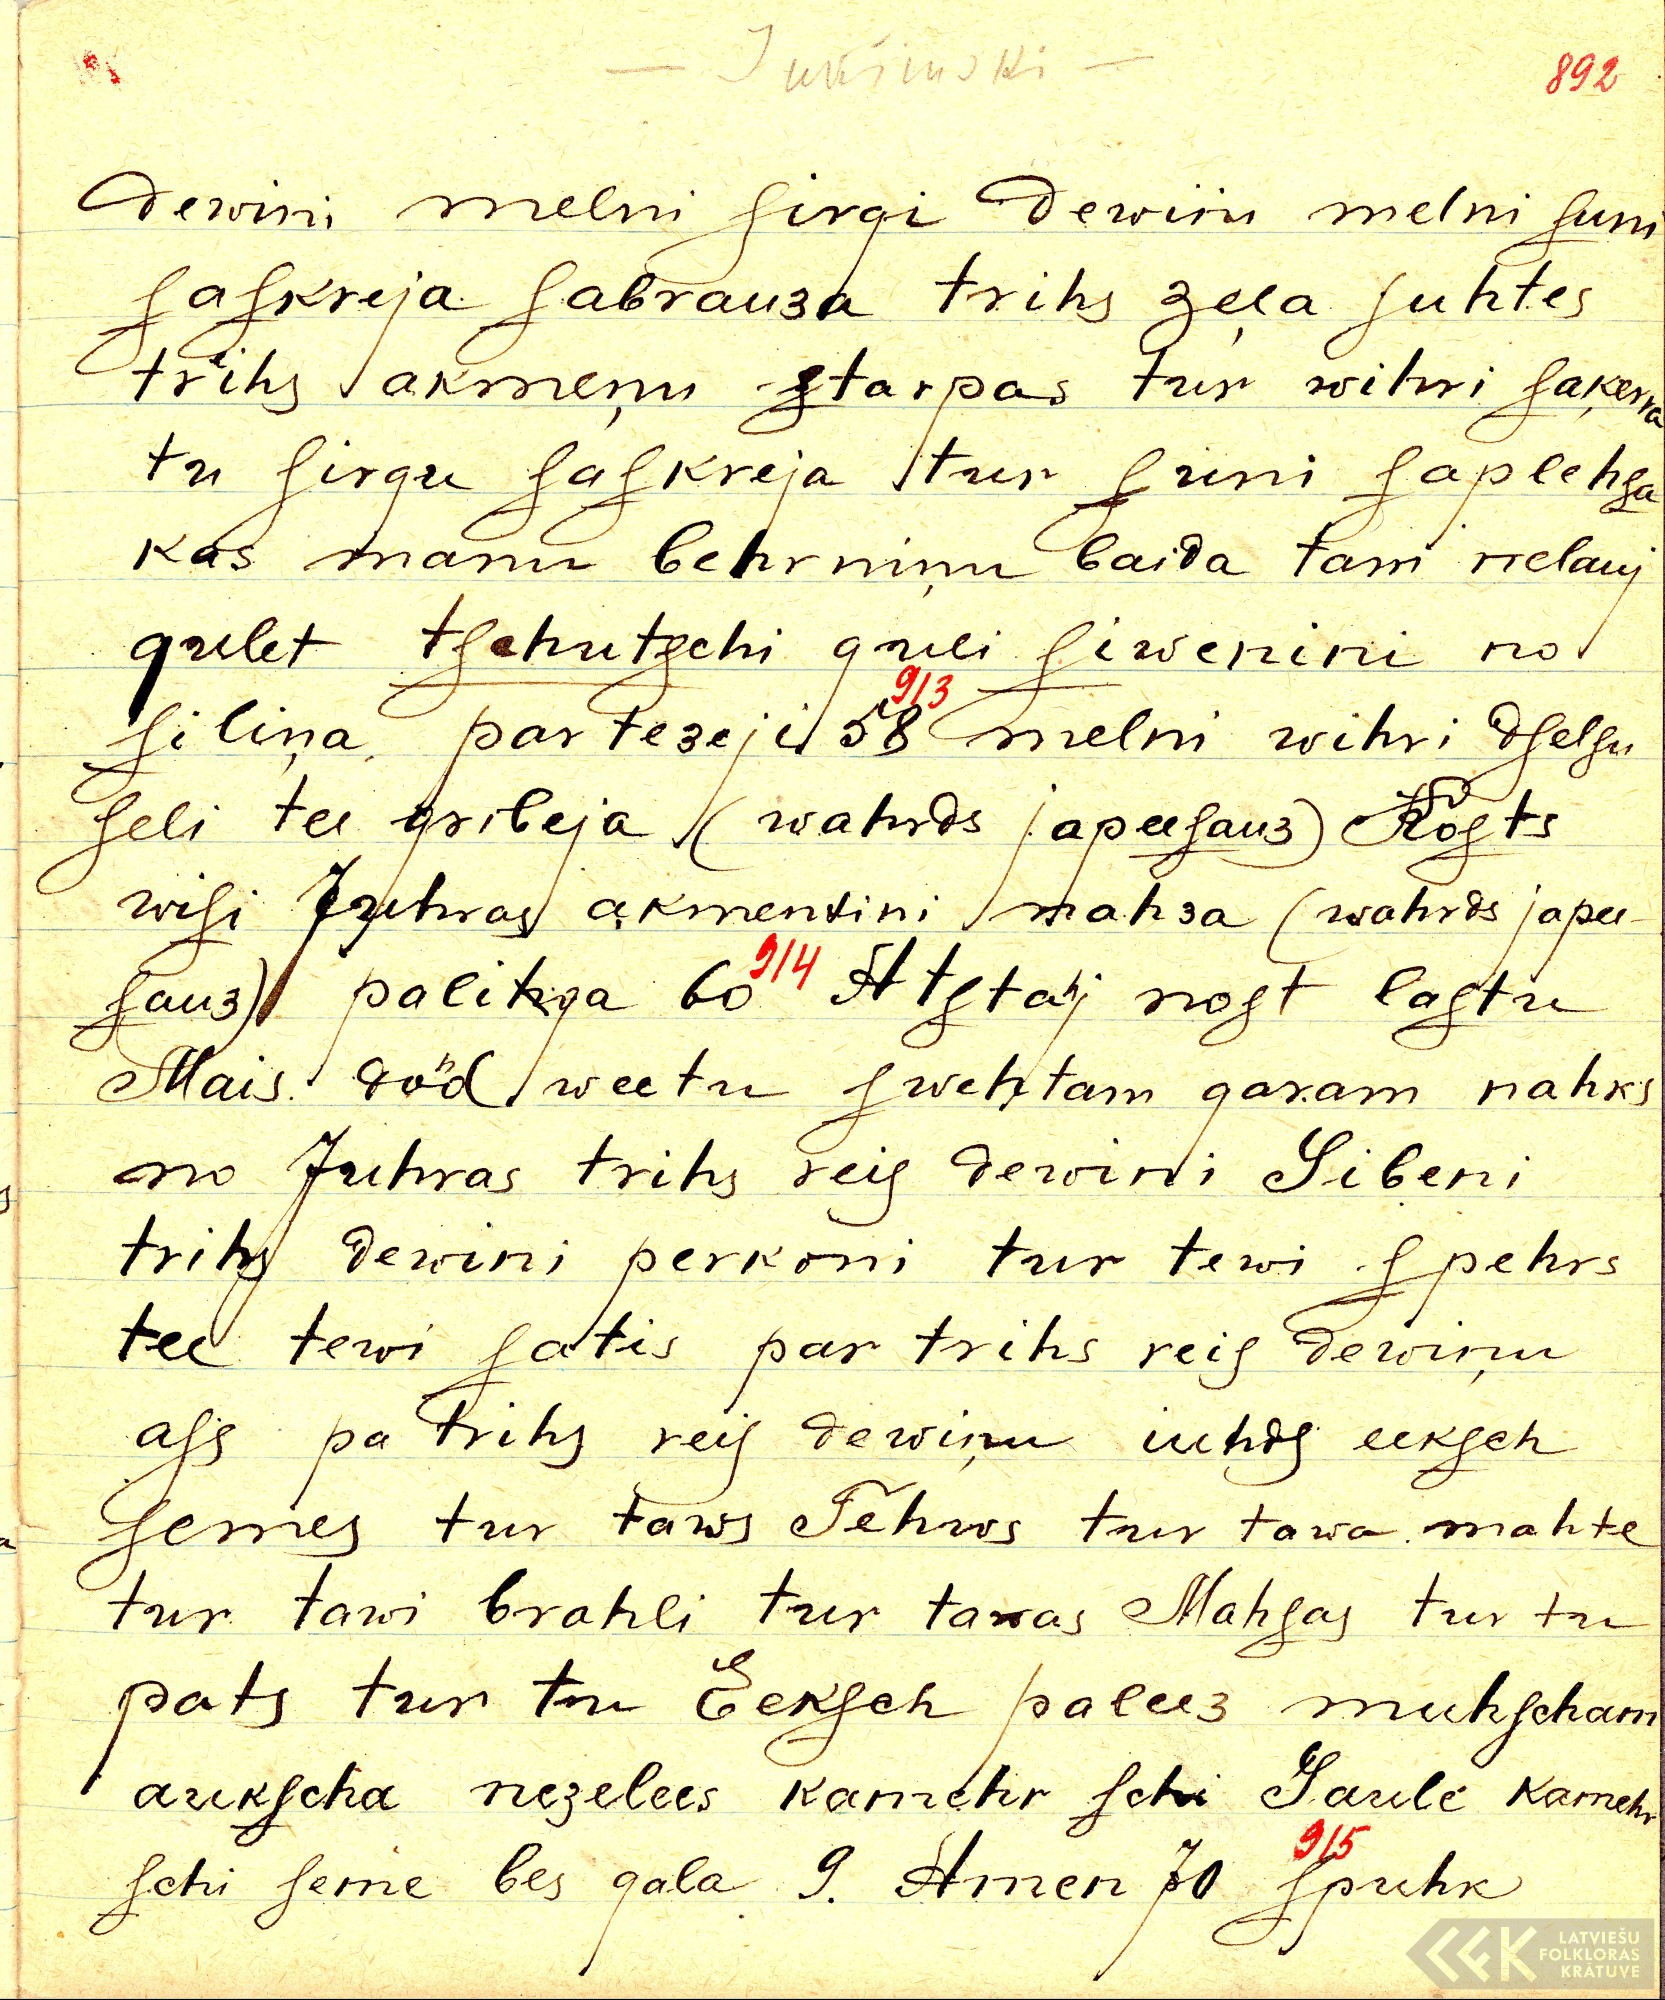 892
Dewini melni ſirgi Dewini melni ſuni
ſaſkreja ſabrauza trihs zeļa ſuhtes
trihs akmeņu starpas tur wihri ſaķerra
tu ſirgu ſaſkreja tur ſuni ſaplehſa
kas manu behrniņu baida tam nelauj
gulet tſchutſchi guli ſiwenini no
ſiliņa partezeji 58 913 melni wihri dſelſu
ſeli tee gribeja (wahrds japeeſauz) Rogts
wiſi Juhras akmentini mahza (wahrds japee-
ſauz) palihga 60 914 Atſtahj nogſt laſtu
Mais dod weetu ſwehtam garam nahks
no Juhras trihs reiſ dewini Sibeni
trihs dewini perkoni tur tewi ſpehrs
tee tewi ſatis par trihs reiſ dewiņu
aſs pa trihs reiſ dewiņu iuhds eekſch
ſemes tur taws Tehws tur tawa mahte
tur tawi brahli tur tawas Mahſas tur tu
pats tur tu Eekſch paleez muhſcham
aukſcha nezelees kamehr ſchi Saule kamehr
ſchi ſeme bes gala 9. Amen 70 915 ſpuhk
LATVIEŠU
FOLKLORAS
KRĀTUVE